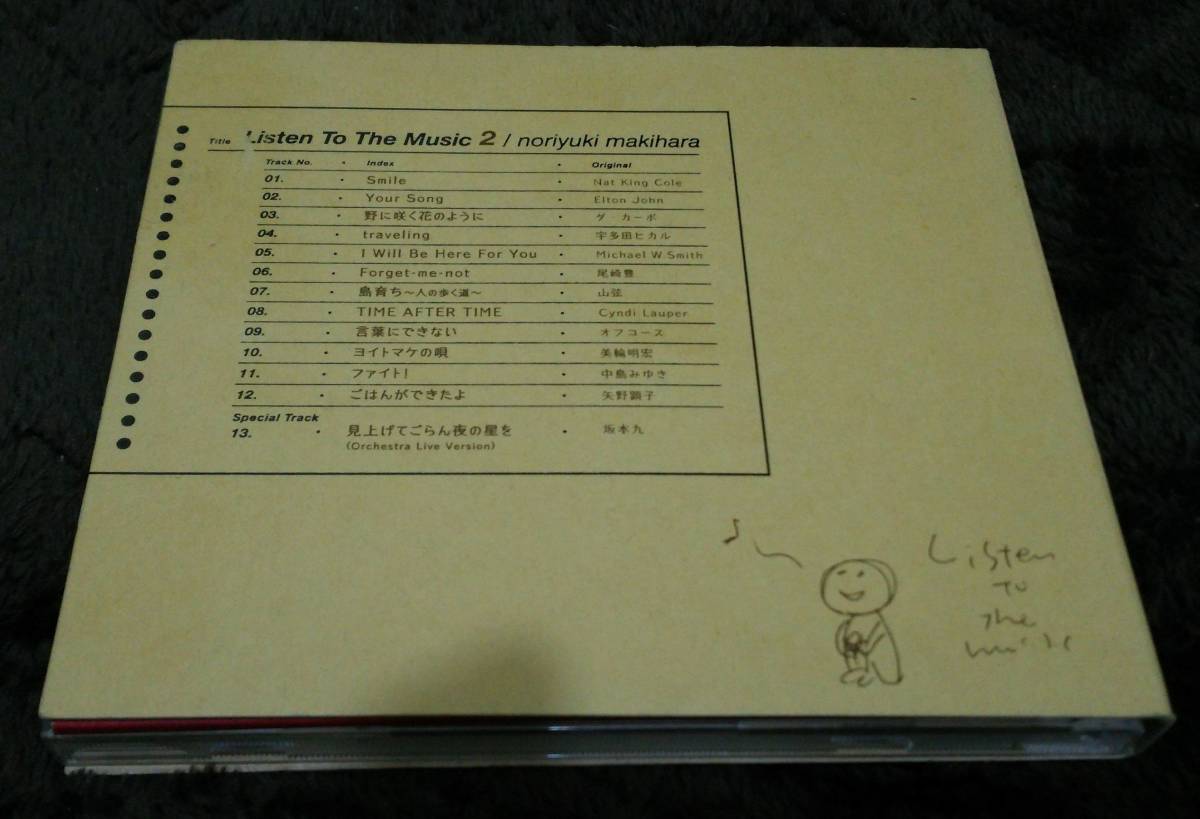 Title Listen To The Music 2 / noriyuki makihara
Track No. ・ Index ・ Original
01. ・ Smile ・ Nat King Cole
02. ・ Your Song ・ Elton John
03. ・ 野に咲く花のように ・ ダ カーポ
04. ・ traveling ・ 宇多田ヒカル
05. ・ I Will Be Here For You ・ Michael W Smith
06. ・ Forget-me-not ・ 尾崎豊
07. ・ 島育ち〜人の歩く道〜 ・ 山弦
08. ・ TIME AFTER TIME ・ Cyndi Lauper
09. ・ 言葉にできない ・ オフコース
10. ・ ヨイトマケの唄 ・ 美輪明宏
11. ・ ファイト! ・ 中島みゆき
12. ・ ごはんができたよ ・ 矢野顕子
Special Track
13. ・ 見上げてごらん夜の星を ・ 坂本九
(Orchestra Live Version)
Listen
To
The
music